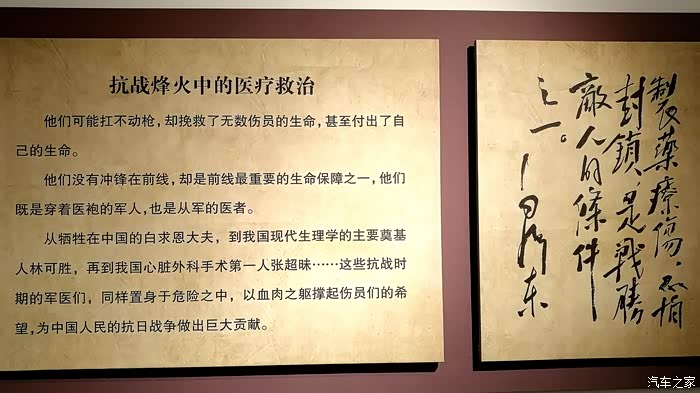 抗战烽火中的医疗救治
他们可能扛不动枪，却挽救了无数伤员的生命，甚至付出了自
己的生命。
他们没有冲锋在前线，却是前线最重要的生命保障之一，他们
既是穿着医袍的军人，也是从军的医者。
从牺牲在中国的白求恩大夫，到我国现代生理学的主要奠基
人林可胜，再到我国心脏外科手术第一人张超昧……这些抗战时
期的军医们，同样置身于危险之中，以血肉之躯撑起伤员们的希
望，为中国人民的抗日战争做出巨大贡献。
製藥療傷，不怕
封鎖，是戰勝
敵人的條件
之一。
毛澤东
汽车之家